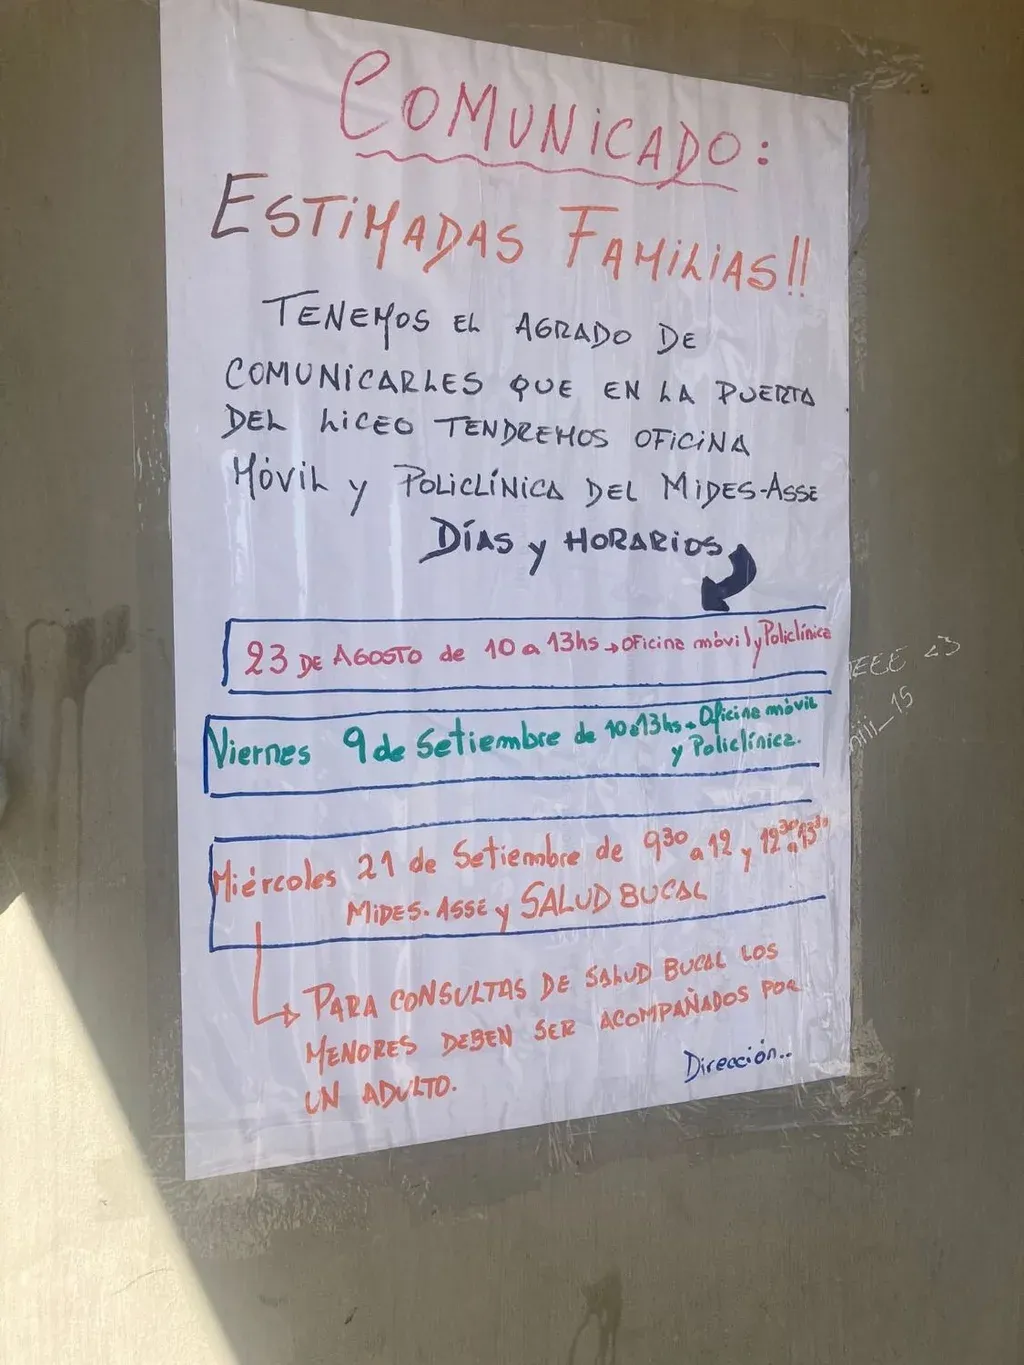 COMUNICADO:
ESTIMADAS FAMILIAS!!
TENEMOS EL AGRADO DE
COMUNICARLES QUE EN LA PUERTA
DEL LICEO TENDREMOS OFICINA
MÓVIL y POLICLÍNICA DEL MIDES-ASSE
DÍAS y HORARIOS
23 DE AGOSTO de 10 a 13hs → OFicina móvil y Policlínica
Viernes 9 de Setiembre de 10 a 13hs → Oficina móvil
y Policlínica.
Miércoles 21 de Setiembre de 9³⁰ a 12 y 12³⁰ a 13³⁰
MIDES-ASSE y SALUD BUCAL
→ PARA CONSULTAS DE SALUD BUCAL LOS
MENORES DEBEN SER ACOMPAÑADOS POR
UN ADULTO.
Dirección..